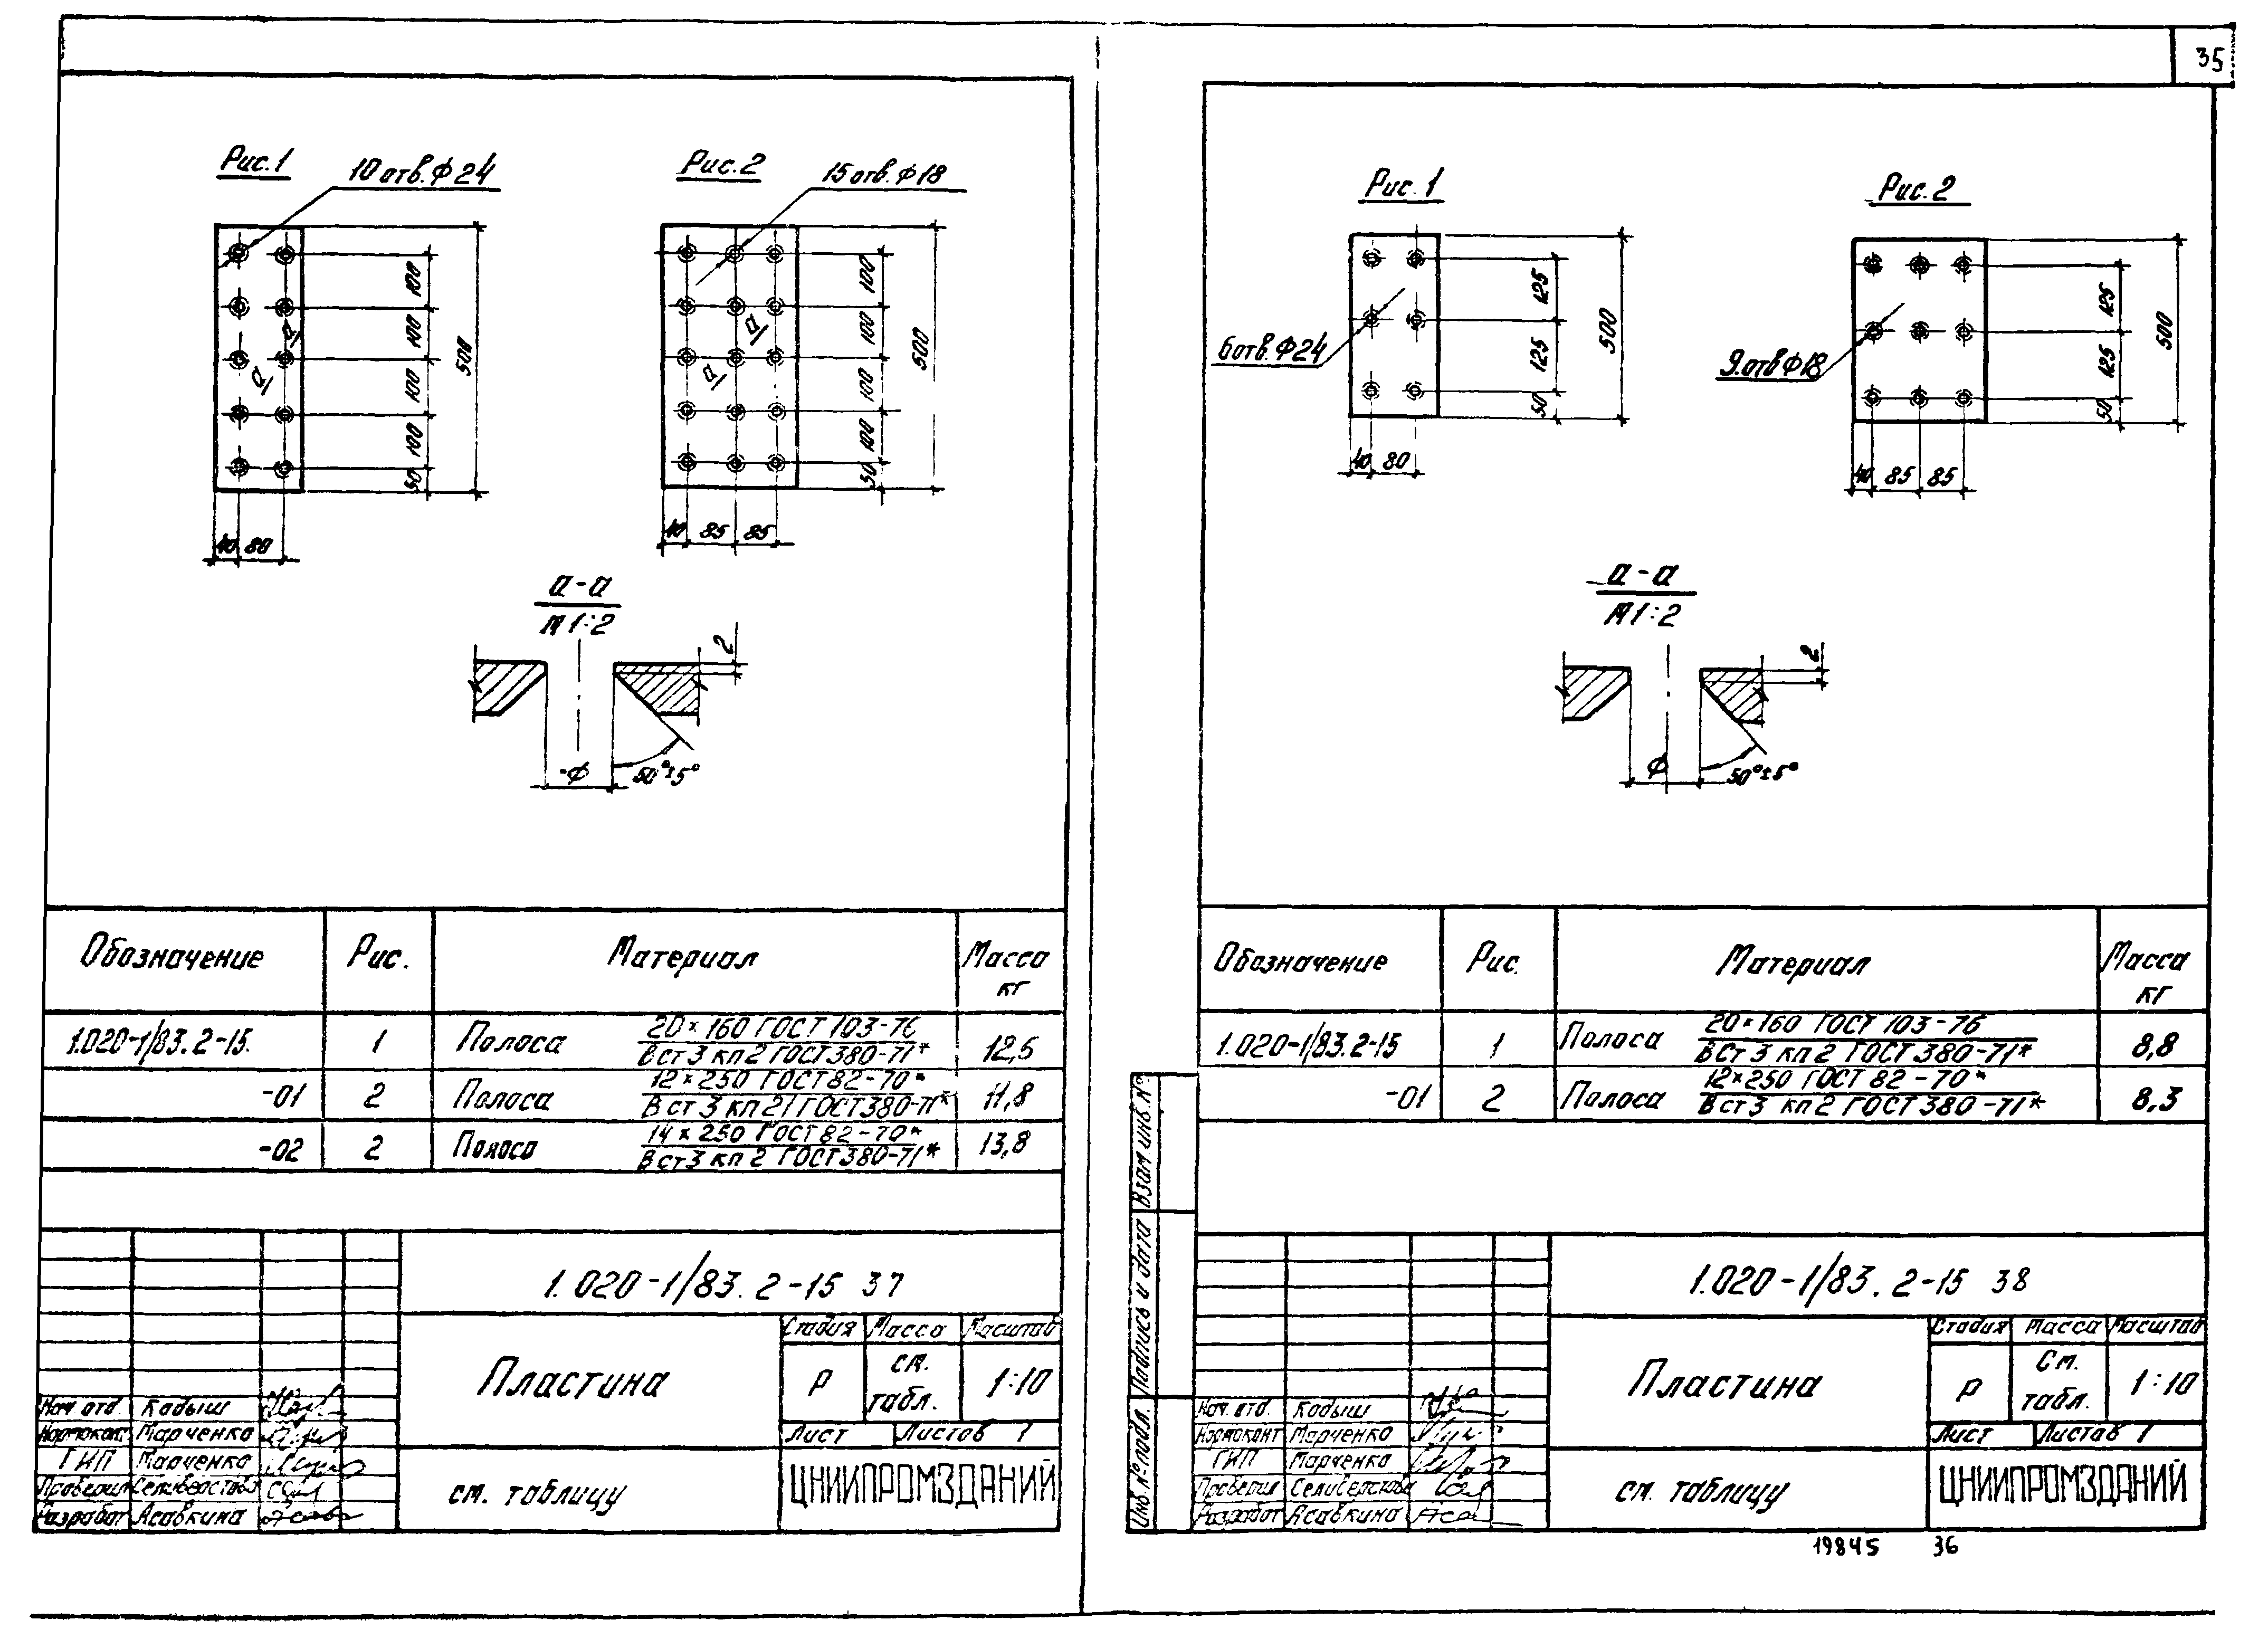 35
Рис.1
10 отв. Ф24
100
100
100
100
50
500
40 80
Рис.2
15 отв. Ф18
100
100
100
100
50
500
40 85 85
а
а
а
а
а-а
М 1:2
2
Ф
50°±5°
Обозначение Рис. Материал Масса кг
1.020-1/83.2-15. 1 Полоса 20×160 ГОСТ 103-76 12,5
В ст 3 кп 2 ГОСТ 380-71*
-01 2 Полоса 12×250 ГОСТ 82-70* 11,8
В ст 3 кп 2 ГОСТ 380-71*
-02 2 Полоса 14×250 ГОСТ 82-70* 13,8
В ст 3 кп 2 ГОСТ 380-71*
1.020-1/83. 2-15 37
Пластина
Стадия Масса Масштаб
Р см. табл. 1:10
Лист Листов 1
Нач. отд. Кадыш
Нормоконт Марченко
ГИП Марченко
Проверил
Разработ Асавкина
см. таблицу
ЦНИИПРОМЗДАНИЙ
Рис. 1
6 отв. Ф24
125
125
50
500
40 80
Рис. 2
9 отв Ф18
125
125
50
500
40 85 85
а-а
М 1:2
2
Ф
50°±5°
Обозначение Рис. Материал Масса кг
1.020-1/83.2-15 1 Полоса 20×160 ГОСТ 103-76 8,8
В Ст 3 кп 2 ГОСТ 380-71*
-01 2 Полоса 12×250 ГОСТ 82-70* 8,3
В ст 3 кп 2 ГОСТ 380-71*
Взам. инв. №
Подпись и дата
Инв. № подл.
1.020-1/83. 2-15 38
Пластина
Стадия Масса Масштаб
Р См. табл. 1:10
Лист Листов 1
Нач. отд. Кадыш
Нормоконт Марченко
ГИП Марченко
Проверил
Разработ Асавкина
см. таблицу
ЦНИИПРОМЗДАНИЙ
19845 36